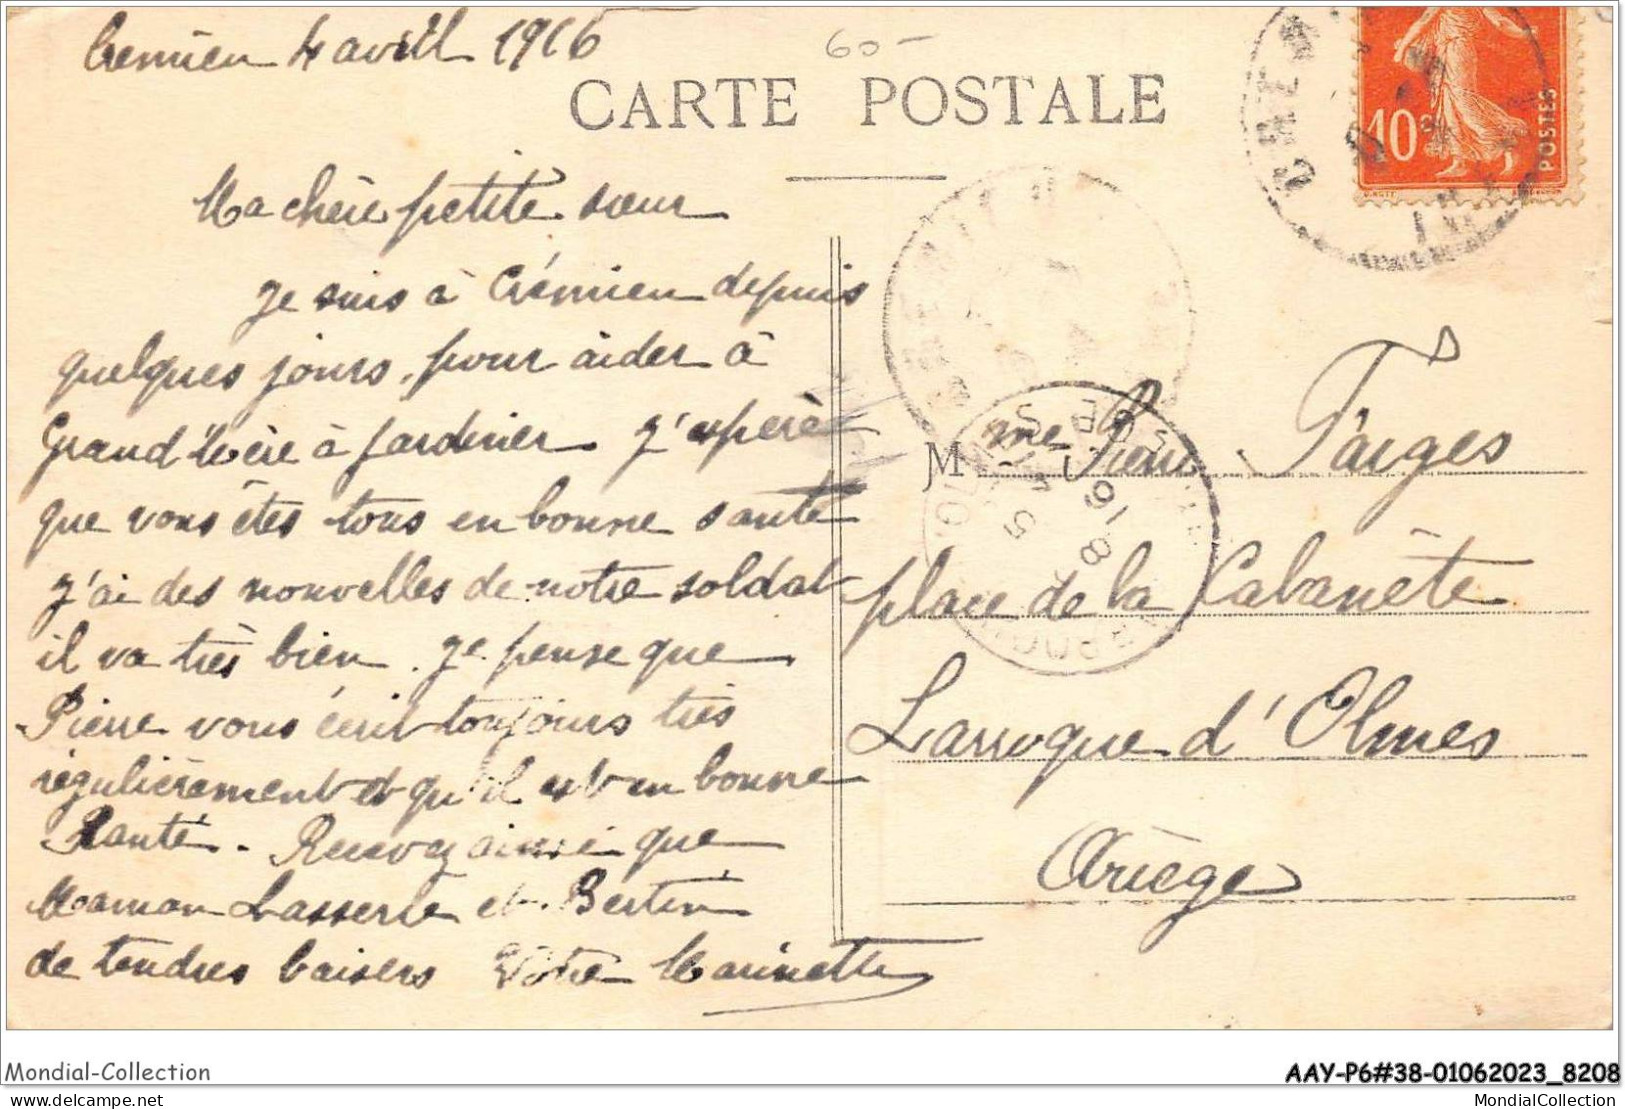 Cremieu 4 avril 1916
60-
CARTE POSTALE
10c
POSTES
Ma chère petite sœur
je suis à Crémieu depuis
quelques jours, pour aider à
Grand'Mère à jardiner J'espère
que vous êtes tous en bonne santé
J'ai des nouvelles de notre soldat
il va très bien. Je pense que
Pierre vous écrit toujours très
régulièrement et qu'il est en bonne
santé. Recevez ainsi que
Maman Lasserre et Bertin
de tendres baisers Votre Marinette
Mme Pierre Farges
place de la Cabanète
Larroque d'Olmes
Ariège
Mondial-Collection
AAY-P6#38-01062023_8208
delcampe.net
MondialCollection